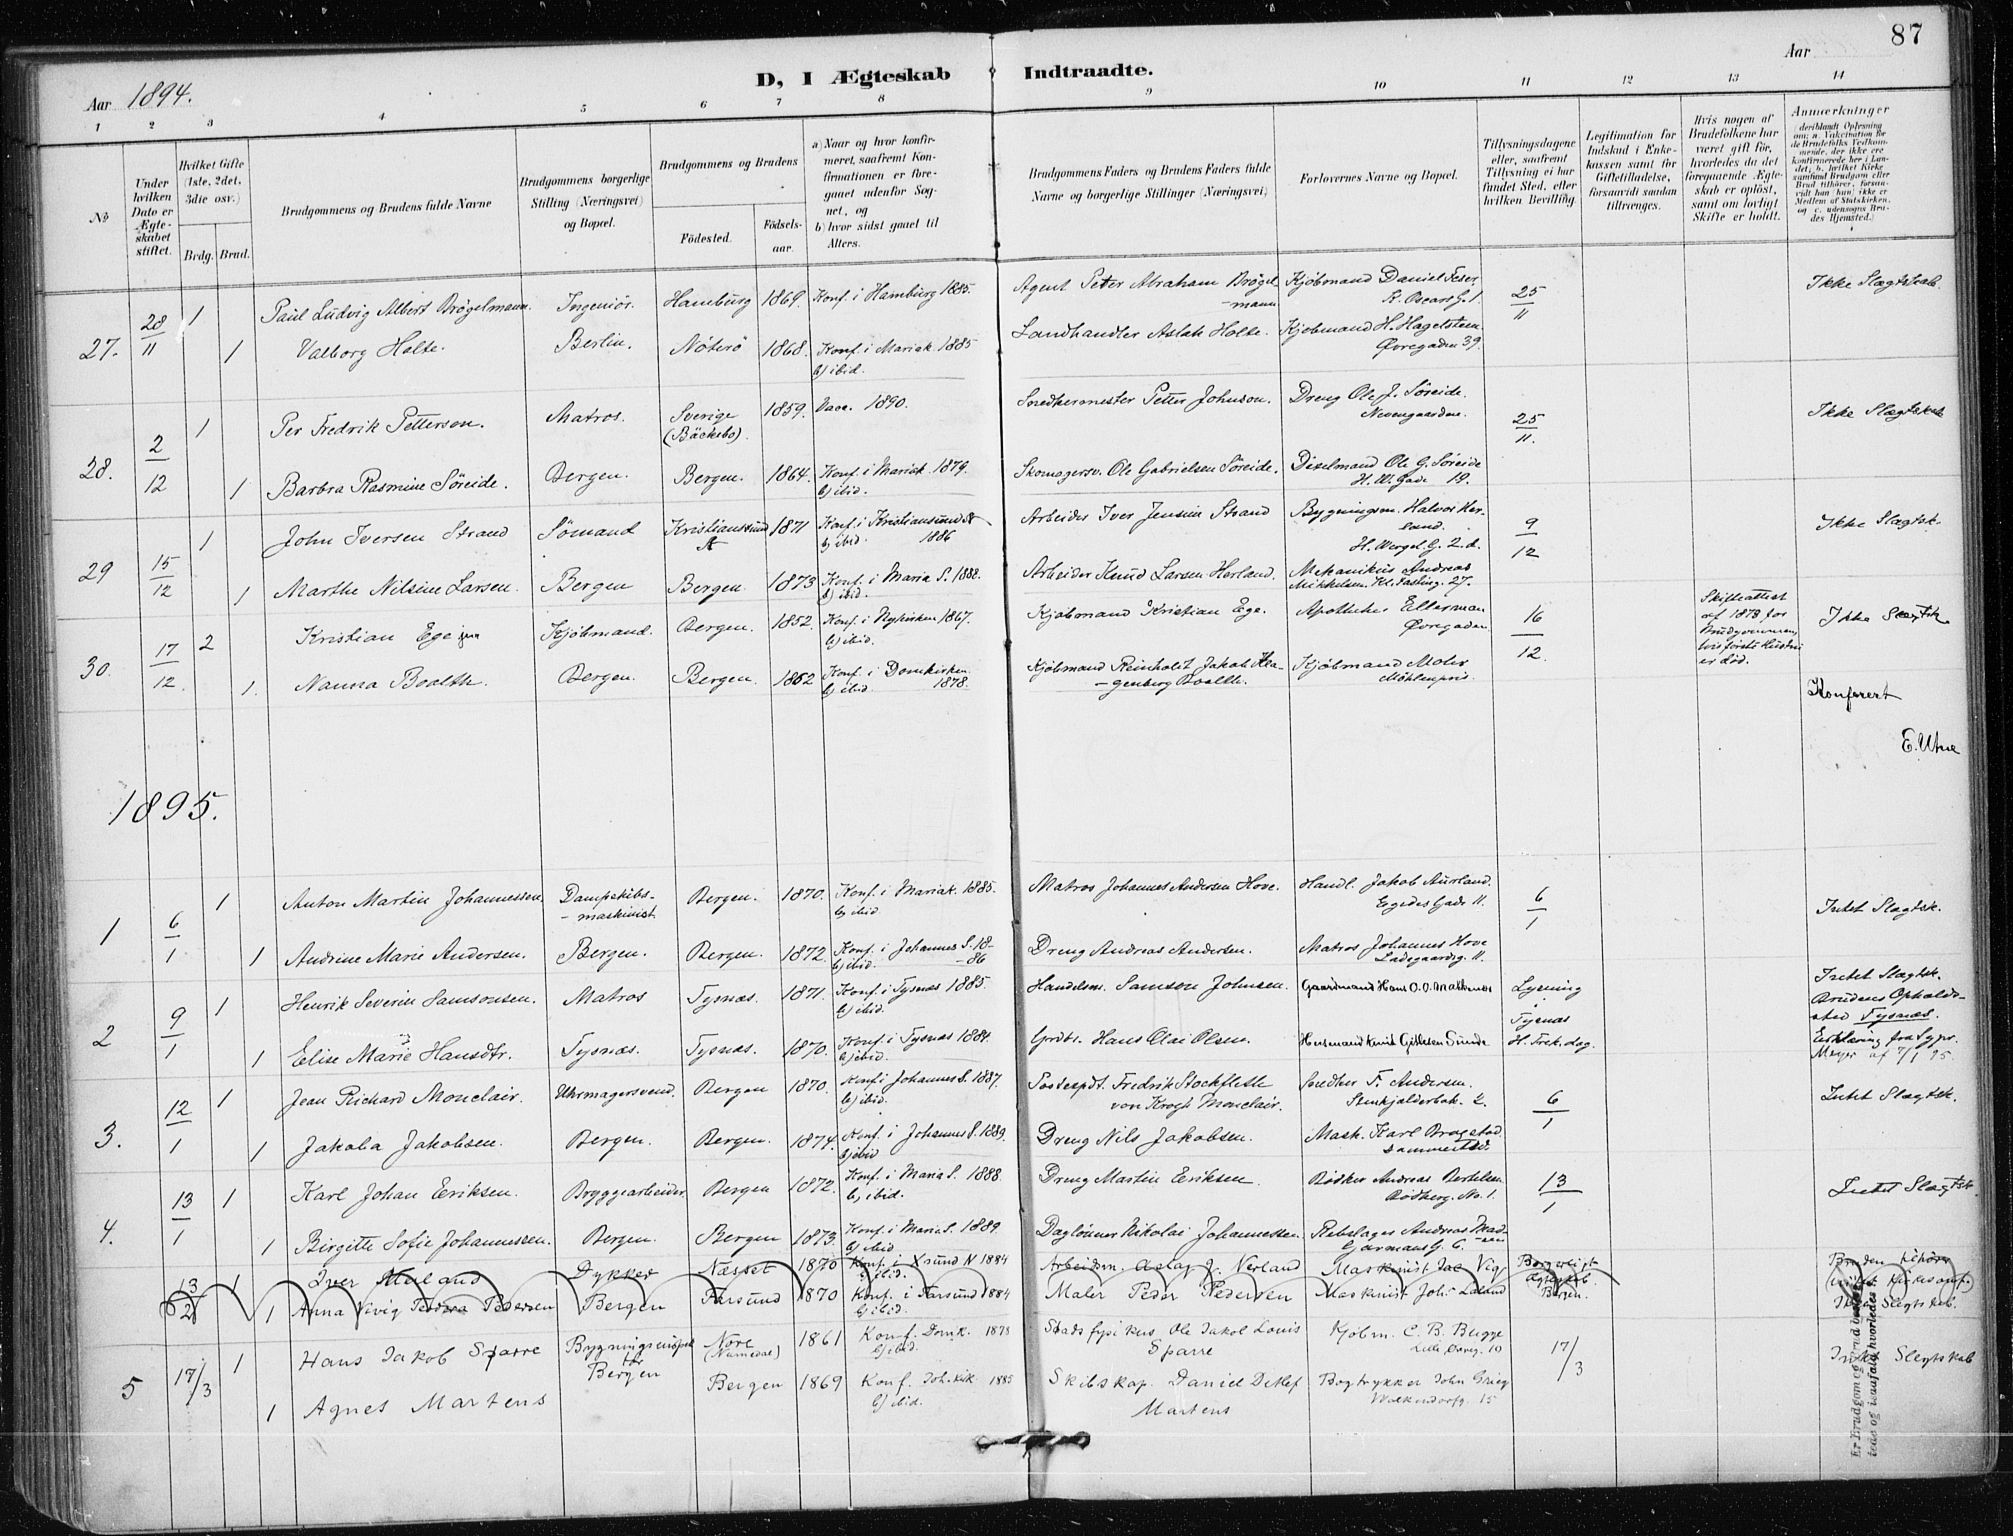 87
D, I Ægteskab Indtraadte.
Aar 1894.
Aar
1 2 3 4 5 6 7 8 9 10 11 12 13 14
No
Under hvilken Dato er Ægteskabet stiftet.
Hvilket Gifte (1ste, 2det, 3die osv.)
Brdg. Brud.
Brudgommens og Brudens fulde Navne
Brudgommens borgerlige Stilling (Næringsvei) og Bopæl.
Brudgommens og Brudens
Födested.
Födselsaar.
a) Naar og hvor konfirmeret, saafremt Konfirmationen er foregaaet udenfor Sognet, og
b) hvor sidst gaaet til Alters.
Brudgommens Faders og Brudens Faders fulde Navne og borgerlige Stillinger (Næringsvei)
Forlovernes Navne og Bopæl.
Tillysningsdagene eller, saafremt Tillysning ei har fundet Sted, efter hvilken Bevilling.
Legitimation for Indskud i Enkekassen samt for Giftetilladelse, forsaavidt saadan tiltrænges.
Hvis nogen af Brudefolkene har været gift för, hvorledes da det foregaaende Ægteskab er oplöst, samt om lovligt Skifte er holdt.
Anmærkninger
(deriblandt Oplysning om: a. Vakcination for de Brudefolks Vedkommende, der ikke ere konfirmerede her i Landet; b. hvilket Kirkesamfund Brudgom eller Brud tilhörer, forsaavidt han (hun) ikke er Medlem af Statskirken, og c. udensogns Brudes Hjemsted.)
27. 28/11 1 Paul Ludvig Albert Brögelmann. Ingeniör. Hamburg 1869. Konf. i Hamburg 1885. Agent Petter Abraham Brögelmann Kjöbmand Daniel Feser, K. Oscars G. 1 25/11 Ikke Slagtskab.
1 Valborg Holte. Berlin. Nöterö 1868. Konf. i Mariak. 1885 b) ibid. Landhandler Aslak Holte. Kjöbmand H. Hagelsteen. Övregaden 39.
28. 2/12 1 Per Fredrik Petterson. Matros. Sverige (Bäckebo). 1859. Vacc. 1890. Snedkermester Petter Johnson. Dreng Ole J. Söreide. Nevengaarden. 25/11. Ikke Slægtskab
1 Barbra Rasmine Söreide. Bergen. Bergen. 1864. Konf. i Mariak. 1879. b) ibid. Skomagersv. Ole Gabrielsen Söreide. Diselmand Ole G. Söreide H. W. Gade 19.
29 15/12 1 John Iversen Strand Sömand Kristianssund 1871 Konf. i Kristiansund 1886 b) ibid. Arbeider Iver Jensen Strand Bygningsm. Halvor Herland. H. Wergel. G. 2. d. 9/12 Ikke Slagtsk.
1 Marthe Nilsine Larsen. Bergen Bergen. 1873 Konf. i Maria S. 1888. b) ibid. Arbeider Knud Larsen Herland. Mekanikus Andreas Mikkelsen. Kl. Fasting. 27.
30. 17/12. 2 Kristian Ege jun Kjöbmand. Bergen. 1852. Konf. i Nykirken 1867. b) ibid. Kjöbmand Kristian Ege. Apotheker Ellerman Övregaden. 16/12. Skifteattest af 1878 for Brudgommen, hvis förste Hustru er död. Ikke Slægtsk.
1. Nanna Boalth. Bergen. Bergen. 1862 Konf. i Domkirken 1878. b) ibid. Kjöbmand Reinholdt Jakob Hagenberg Boalth. Kjöbmand Mohr Möhlenpris.
Konferert
E. Utne
1895.
1 6/1 1 Anton Martin Johannessen. Dampskibsmaskinist Bergen. 1870. Konf. i Mariak. 1885. b) ibid Matros Johannes Andersen Hove. Handl. Jakob Aurland. Egedes Gade 11. 6/1 Intet Slægtsk.
1 Andrine Marie Andersen. Bergen. Bergen. 1872. Konf. i Johannes S. 1886 b) ibid. Dreng Andreas Andersen. Matros Johannes Hove Ladegaardsg. 11.
2 9/1 1 Henrik Severin Samsonsen. Matros Tysnæs. 1871. Konf. i Tysnæs 1885. b) ibid. Handelsm. Samson Johnsen. Gaardmand Hans O. O. Malkenæs Lysning i Tysnæs H. Trek. dag. Intet Slægtsk. Brudens Opholdssted Tysnæs. Erklæring fra Sgpr. Meyer af 7/1 95
1 Elise Marie Hansdtr. Tysnæs. Tysnæs. 1870. Konf. i Tysnæs 1884. b) ibid. Grdbr. Hans Olai Olsen. Husmand Knut Gittlesen Sunde
3. 12/1 1 Jean Richard Monclair. Uhrmagersvend. Bergen 1870. Konf. i Johannes S. 1887. b) ibid. Postexpdt. Fredrik Stockfleth von Krogh Monclair. Snedker F. Andersen. Stenkjælderbak. 2. 6/1 Intet Slagtsk.
1 Jakoba Jakobsen. Bergen. Bergen. 1874. Konf. i Johannes S. 1889. b) ibid Dreng Nils Jakobsen. Mask. Karl Brogstad
4. 13/1 1 Karl Johan Eriksen. Bryggearbeider. Bergen 1872. Konf. i Maria S. 1888. b) ibid. Dreng Martin Eriksen. Bödker Andreas Bertelsen Rödberg. No. 1. 13/1 Intet Slagtsk.
1 Birgitte Sofie Johannessen. Bergen. Bergen 1873. Konf. i Maria S. 1889. b) ibid Daglönner Nikolai Johannessen. Rebslager Andreas Madsen Gjarmans G. 6.
13/2 1 Iver Næsset 1870 Konf. i Xsund N 1884 b) ibid. Arbeidsm. Aslag J. Verland Maskinist Jac Vig Borgerligt Ægteskab. Bergen.
1 Anna Pedersen Bergen Farsund 1870 Konf. i Farsund 1884 b) ibid. Maler Peder Pedersen Maskinist Joh. Laland
5 17/3 1 Hans Jakob Sparre Bergen Nore (Numedal) 1861 Konf. Domk. 1878 b) ibid. Stadsfysikus Ole Jakob Louis Sparre Kjöbm. C. B. Bugge Lille Övreg. 10 17/3 Intet Slegtskab
1 Agnes Martens Bergen 1869 Konf. Joh.kik. 1885 b) ibid. Skibskap. Daniel Detlef Martens Bogtrykker John Grieg Walkendorfsg. 15